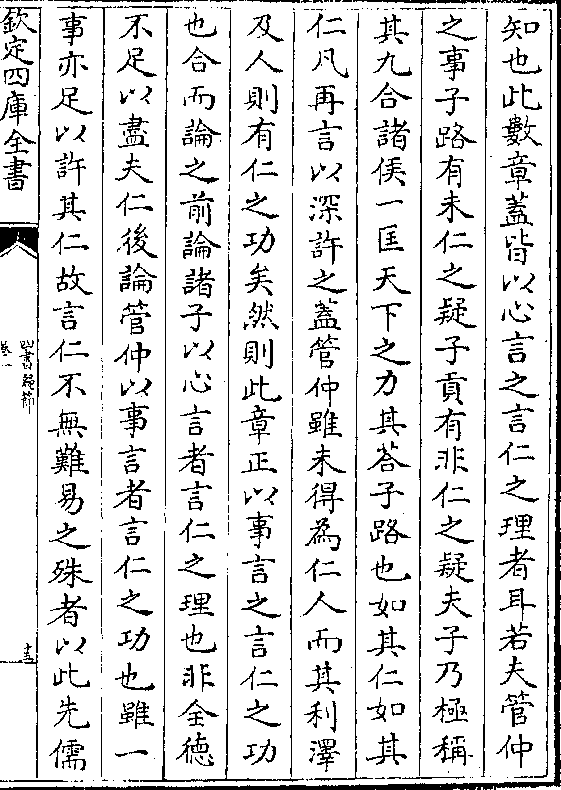 知也此數章蓋皆以心言之言仁之理者耳若夫管仲
之事子路有未仁之疑子貢有非仁之疑夫子乃極稱
其九合諸侯一匡天下之力其荅子路也如其仁如其
仁凡再言以深許之蓋管仲雖未得為仁人而其利澤
及人則有仁之功矣然則此章正以事言之言仁之功
也合而論之前論諸子以心言者言仁之理也非全德
不足以盡夫仁後論管仲以事言者言仁之功也雖一
事亦足以許其仁故言仁不無難易之殊者以此先儒
欽定四庫全書
卷一